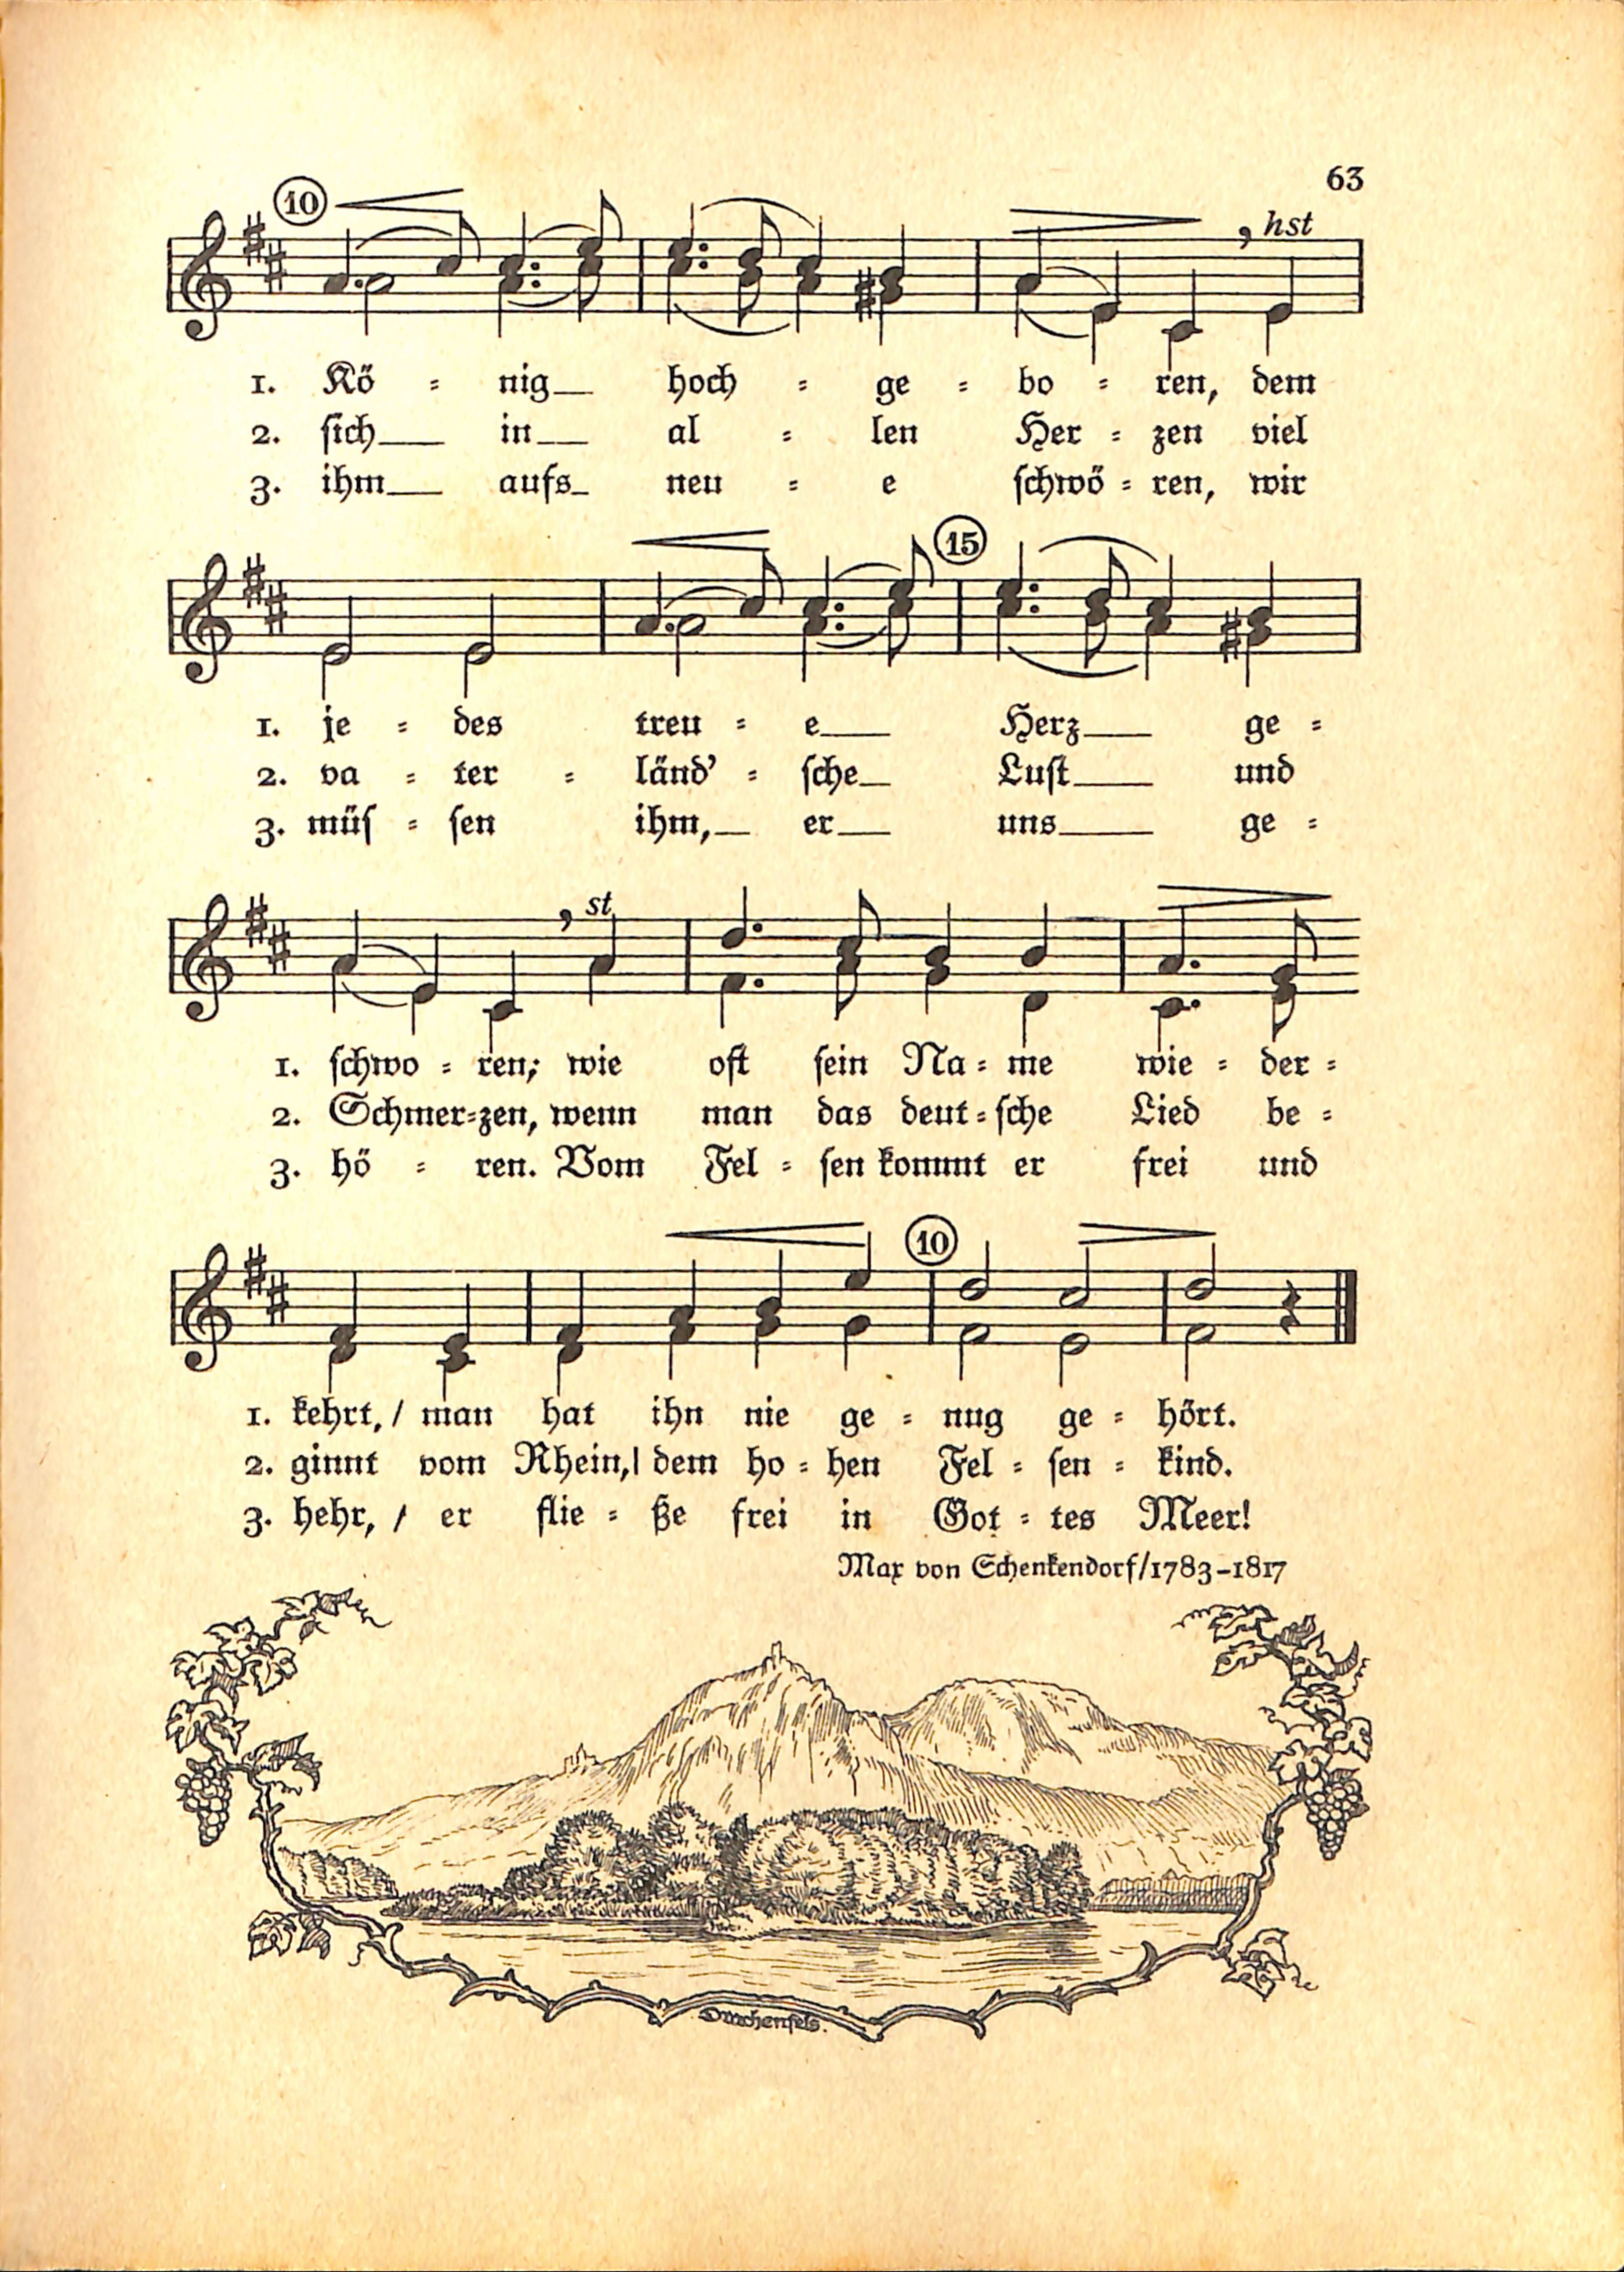 63
10
hst
1. Kö = nig hoch = ge = bo = ren, dem
2. sich in al = len Her = zen viel
3. ihm aufs neu = e schwö = ren, wir
15
1. je = des treu = e Herz ge =
2. va = ter = länd' = sche Lust und
3. müs = sen ihm, er uns ge =
st
1. schwo = ren; wie oft sein Na = me wie = der =
2. Schmer=zen, wenn man das deut = sche Lied be =
3. hö = ren. Vom Fel = sen kommt er frei und
10
1. kehrt, / man hat ihn nie ge = nug ge = hört.
2. ginnt vom Rhein,| dem ho = hen Fel = sen = kind.
3. hehr, / er flie = ße frei in Got = tes Meer!
Max von Schenkendorf/1783–1817